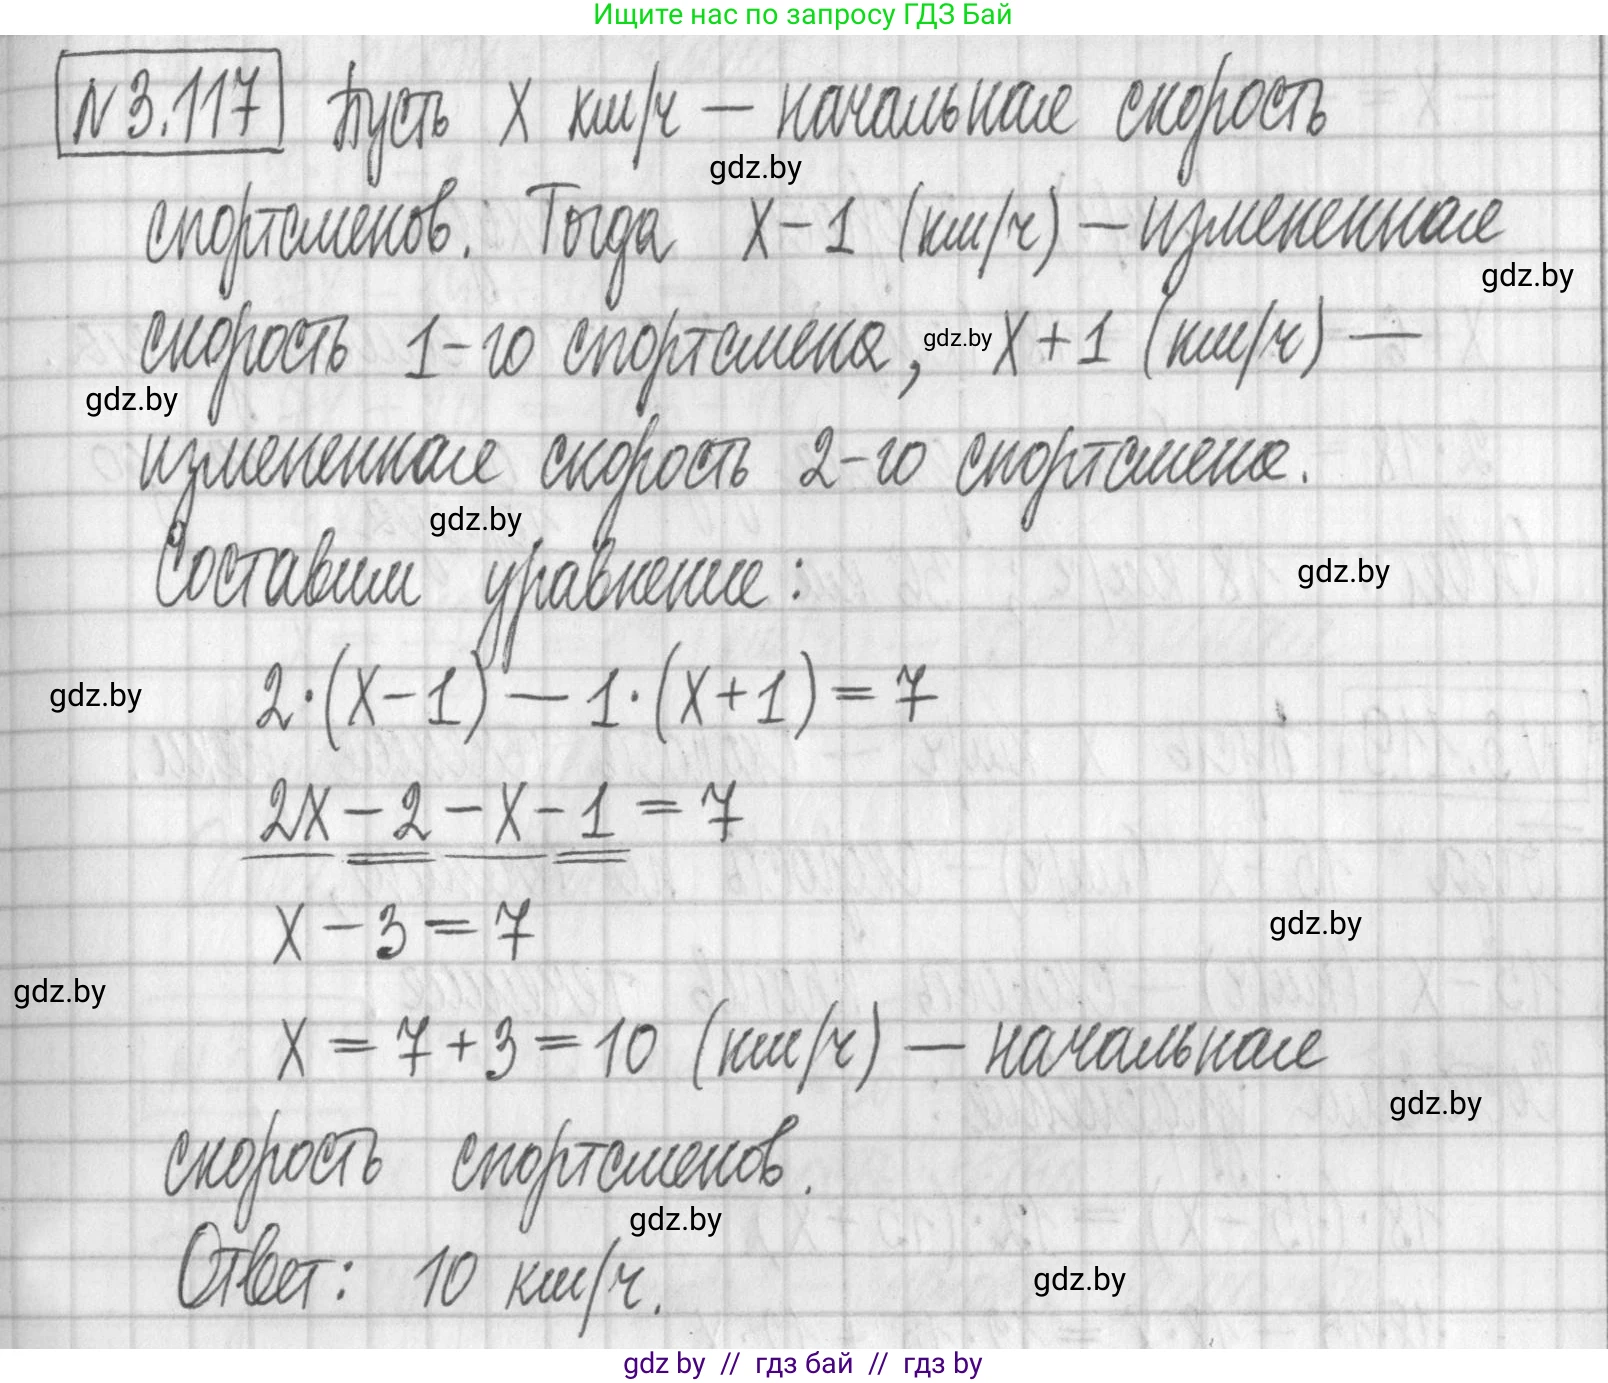 Ищите нас по запросу ГДЗ Бай
№3.117 Пусть x км/ч — начальная скорость
gdz.by
спортсменов. Тогда x-1 (км/ч) — измененная
gdz.by
скорость 1-го спортсмена, gdz.by x+1 (км/ч) —
gdz.by
измененная скорость 2-го спортсмена.
gdz.by
Составим уравнение:
gdz.by
gdz.by 2·(x-1) — 1·(x+1) = 7
2x - 2 - x - 1 = 7
x - 3 = 7
gdz.by
gdz.by
x = 7 + 3 = 10 (км/ч) — начальная
gdz.by
скорость спортсменов.
gdz.by
Ответ: 10 км/ч.
gdz.by
gdz by // гдз бай // гдз by